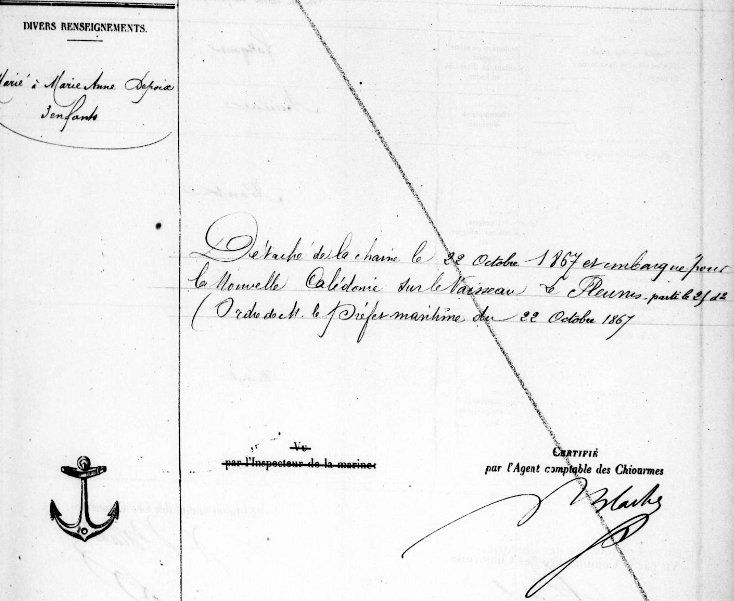 DIVERS RENSEIGNEMENTS.
Marié à Marie Anne Depoix
3 enfants
Détaché de la chaine le 22 Octobre 1867 et embarqué pour
la Nouvelle Calédonie sur le Vaisseau le Fleurus. parti le 25 d°
(Ordre de M. le Préfet maritime du 22 Octobre 1867
Vu
par l'Inspecteur de la marine:
CERTIFIÉ
par l'Agent comptable des Chiourmes